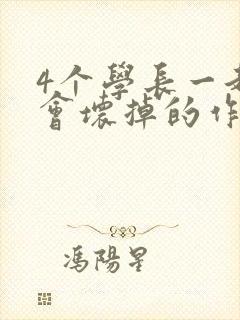 4个學長一
會壞掉的作
馮陽星